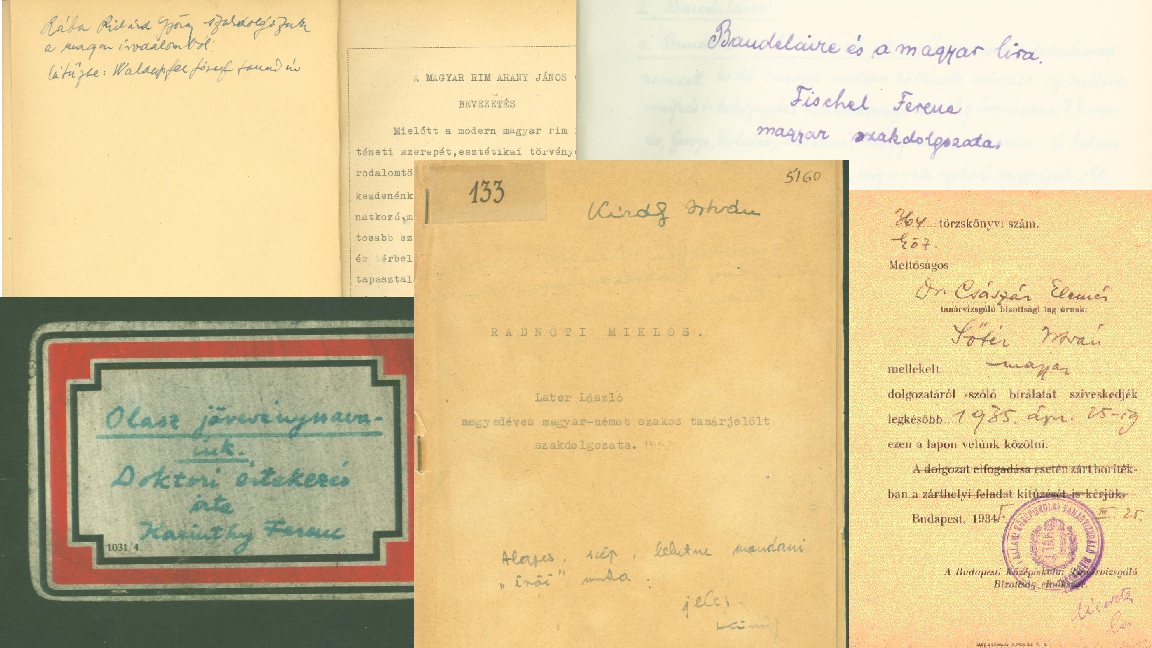 Rába Richárd György szakdolgozata
a magyar irodalomból.
látta: Waldapfel József tanár úr
A MAGYAR RIM ARANY JÁNOS
BEVEZETÉS
Mielőtt a modern magyar rim
téneti szerepét,esztétikai törvénye
rodalomtö
kezdenénk
natkozó,m
tosabb sz
és térbel
tapasztal
Baudelaire és a magyar líra.
Fischel Ferenc
magyar szakdolgozata.
133
5160
Király István
RADNOTI MIKLOS.
Lator László
negyedéves magyar-német szakos tanárjelölt
szakdolgozata.
Alapos, szép, lehetne mondani
„írói" munka.
jeles.
Olasz jövevényszava-
ink.
Doktori értekezés
írta
Karinthy Ferenc
1031/4.
törzskönyvi szám.
Méltóságos
Dr Császár Elemér
tanárvizsgáló bizottsági tag úrnak.
Sőtér István
mellékelt magyar
dolgozatáról szóló bírálatát szíveskedjék
legkésőbb 1935. ápr. 25-ig
ezen a lapon velünk közölni.
A dolgozat elfogadása esetén zárt boríték-
ban a zárthelyi feladat kitűzését is kérjük.
Budapest, 1934 III. 25.
A Budapesti Középiskolai Tanárvizsgáló
Bizottság elnöksége